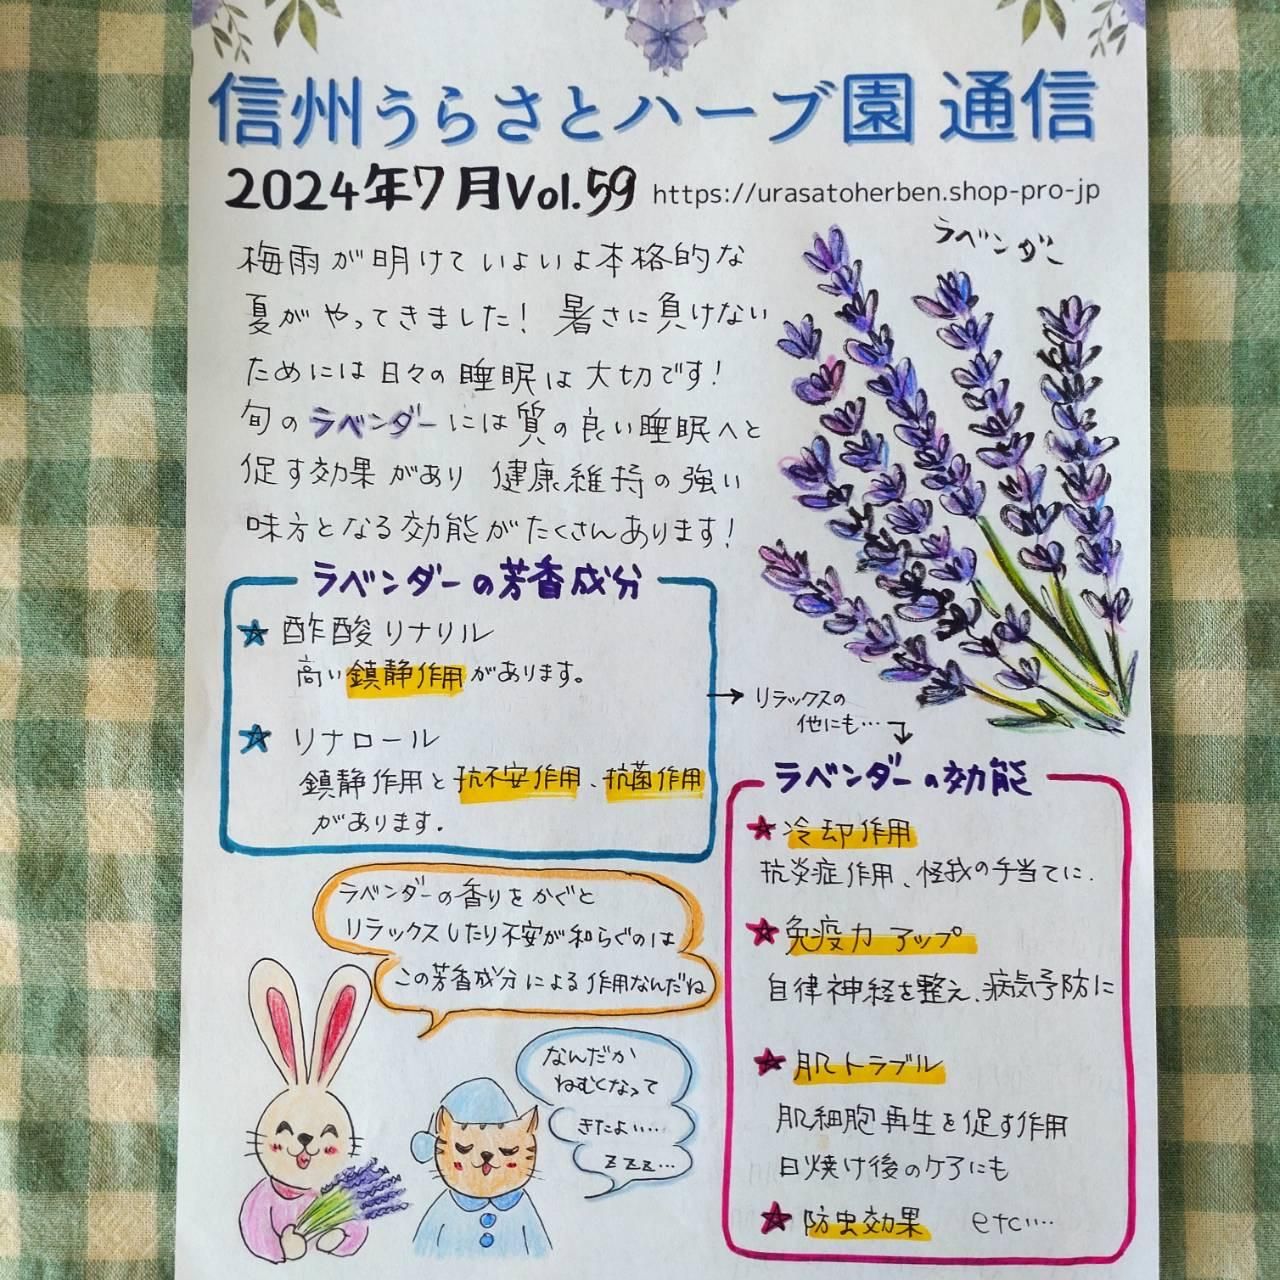 信州うらさとハーブ園 通信
2024年7月Vol.59 https://urasatoherben.shop-pro-jp
ラベンダー
梅雨が明けていよいよ本格的な
夏がやってきました! 暑さに負けない
ためには日々の睡眠は大切です!
旬のラベンダーには質の良い睡眠へと
促す効果があり 健康維持の強い
味方となる効能がたくさんあります!
ラベンダーの芳香成分
☆ 酢酸リナリル
高い鎮静作用があります。
☆ リナロール
鎮静作用と抗不安作用、抗菌作用
があります.
→ リラックスの
他にも…
ラベンダーの効能
★ 冷却作用
抗炎症作用、怪我の手当てに.
★ 免疫力アップ
自律神経を整え、病気予防に
★ 肌トラブル
肌細胞再生を促す作用
日焼け後のケアにも
★ 防虫効果 etc….
ラベンダーの香りをかぐと
リラックスしたり不安が和らぐのは
この芳香成分による作用なんだね
なんだか
ねむくなって
きたよい…
zzz…